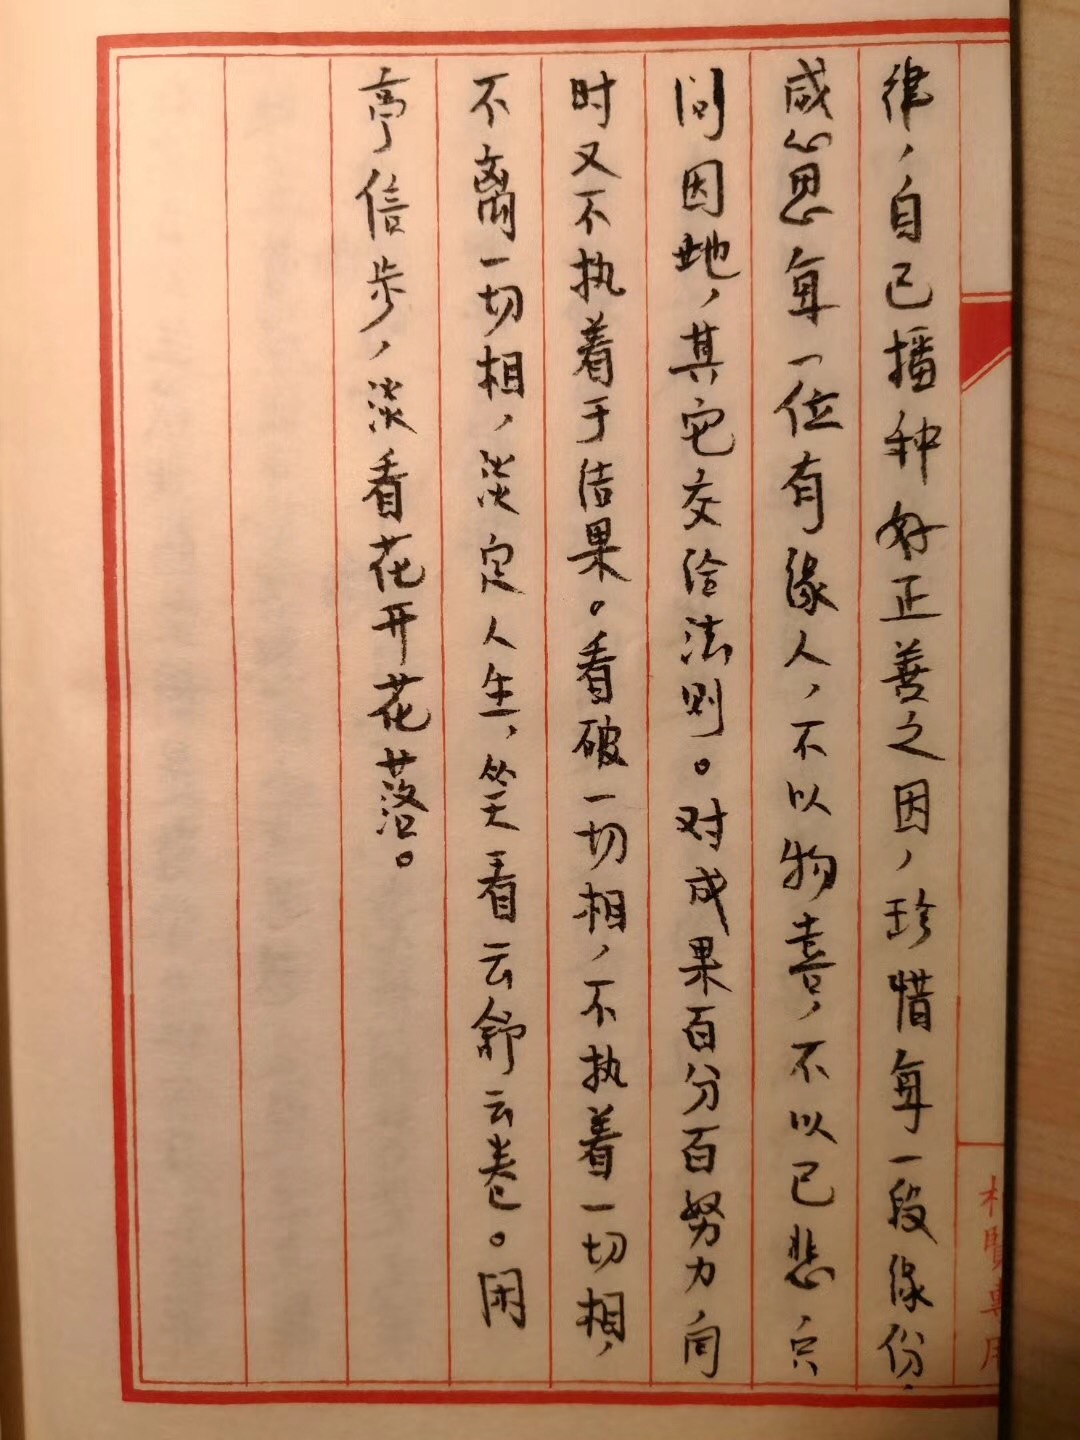 律，自己播种好正善之因，珍惜每一段缘份，
感恩每一位有缘人，不以物喜，不以己悲，只
问因地，其它交给法则。对成果百分百努力，同
时又不执着于结果。看破一切相，不执着一切相，
不离一切相，淡定人生，笑看云舒云卷。闲
亭信步，淡看花开花落。